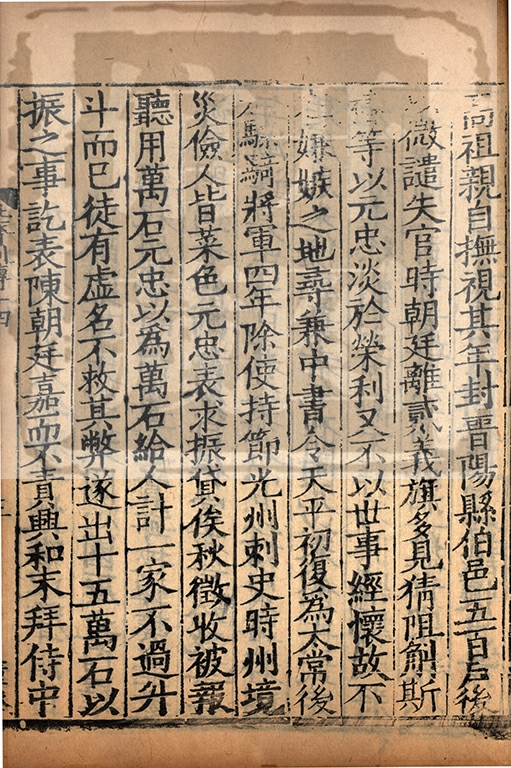 高祖親自撫視其年封晋陽縣伯邑五百户後
微譴失官時朝廷離貳義旗多見猜阻斛斯
等以元忠淡於榮利又不以世事經懷故不
嫌嫉之地尋兼中書令天平初復為太常後
驃騎將軍四年除使持節光州刺史時州境
災儉人皆菜色元忠表求振貸俟秋徵收被報
聽用萬石元忠以為萬石給人計一家不過升
斗而已徒有虚名不救其弊遂出十五萬石以
振之事訖表陳朝廷嘉而不責興和末拜侍中